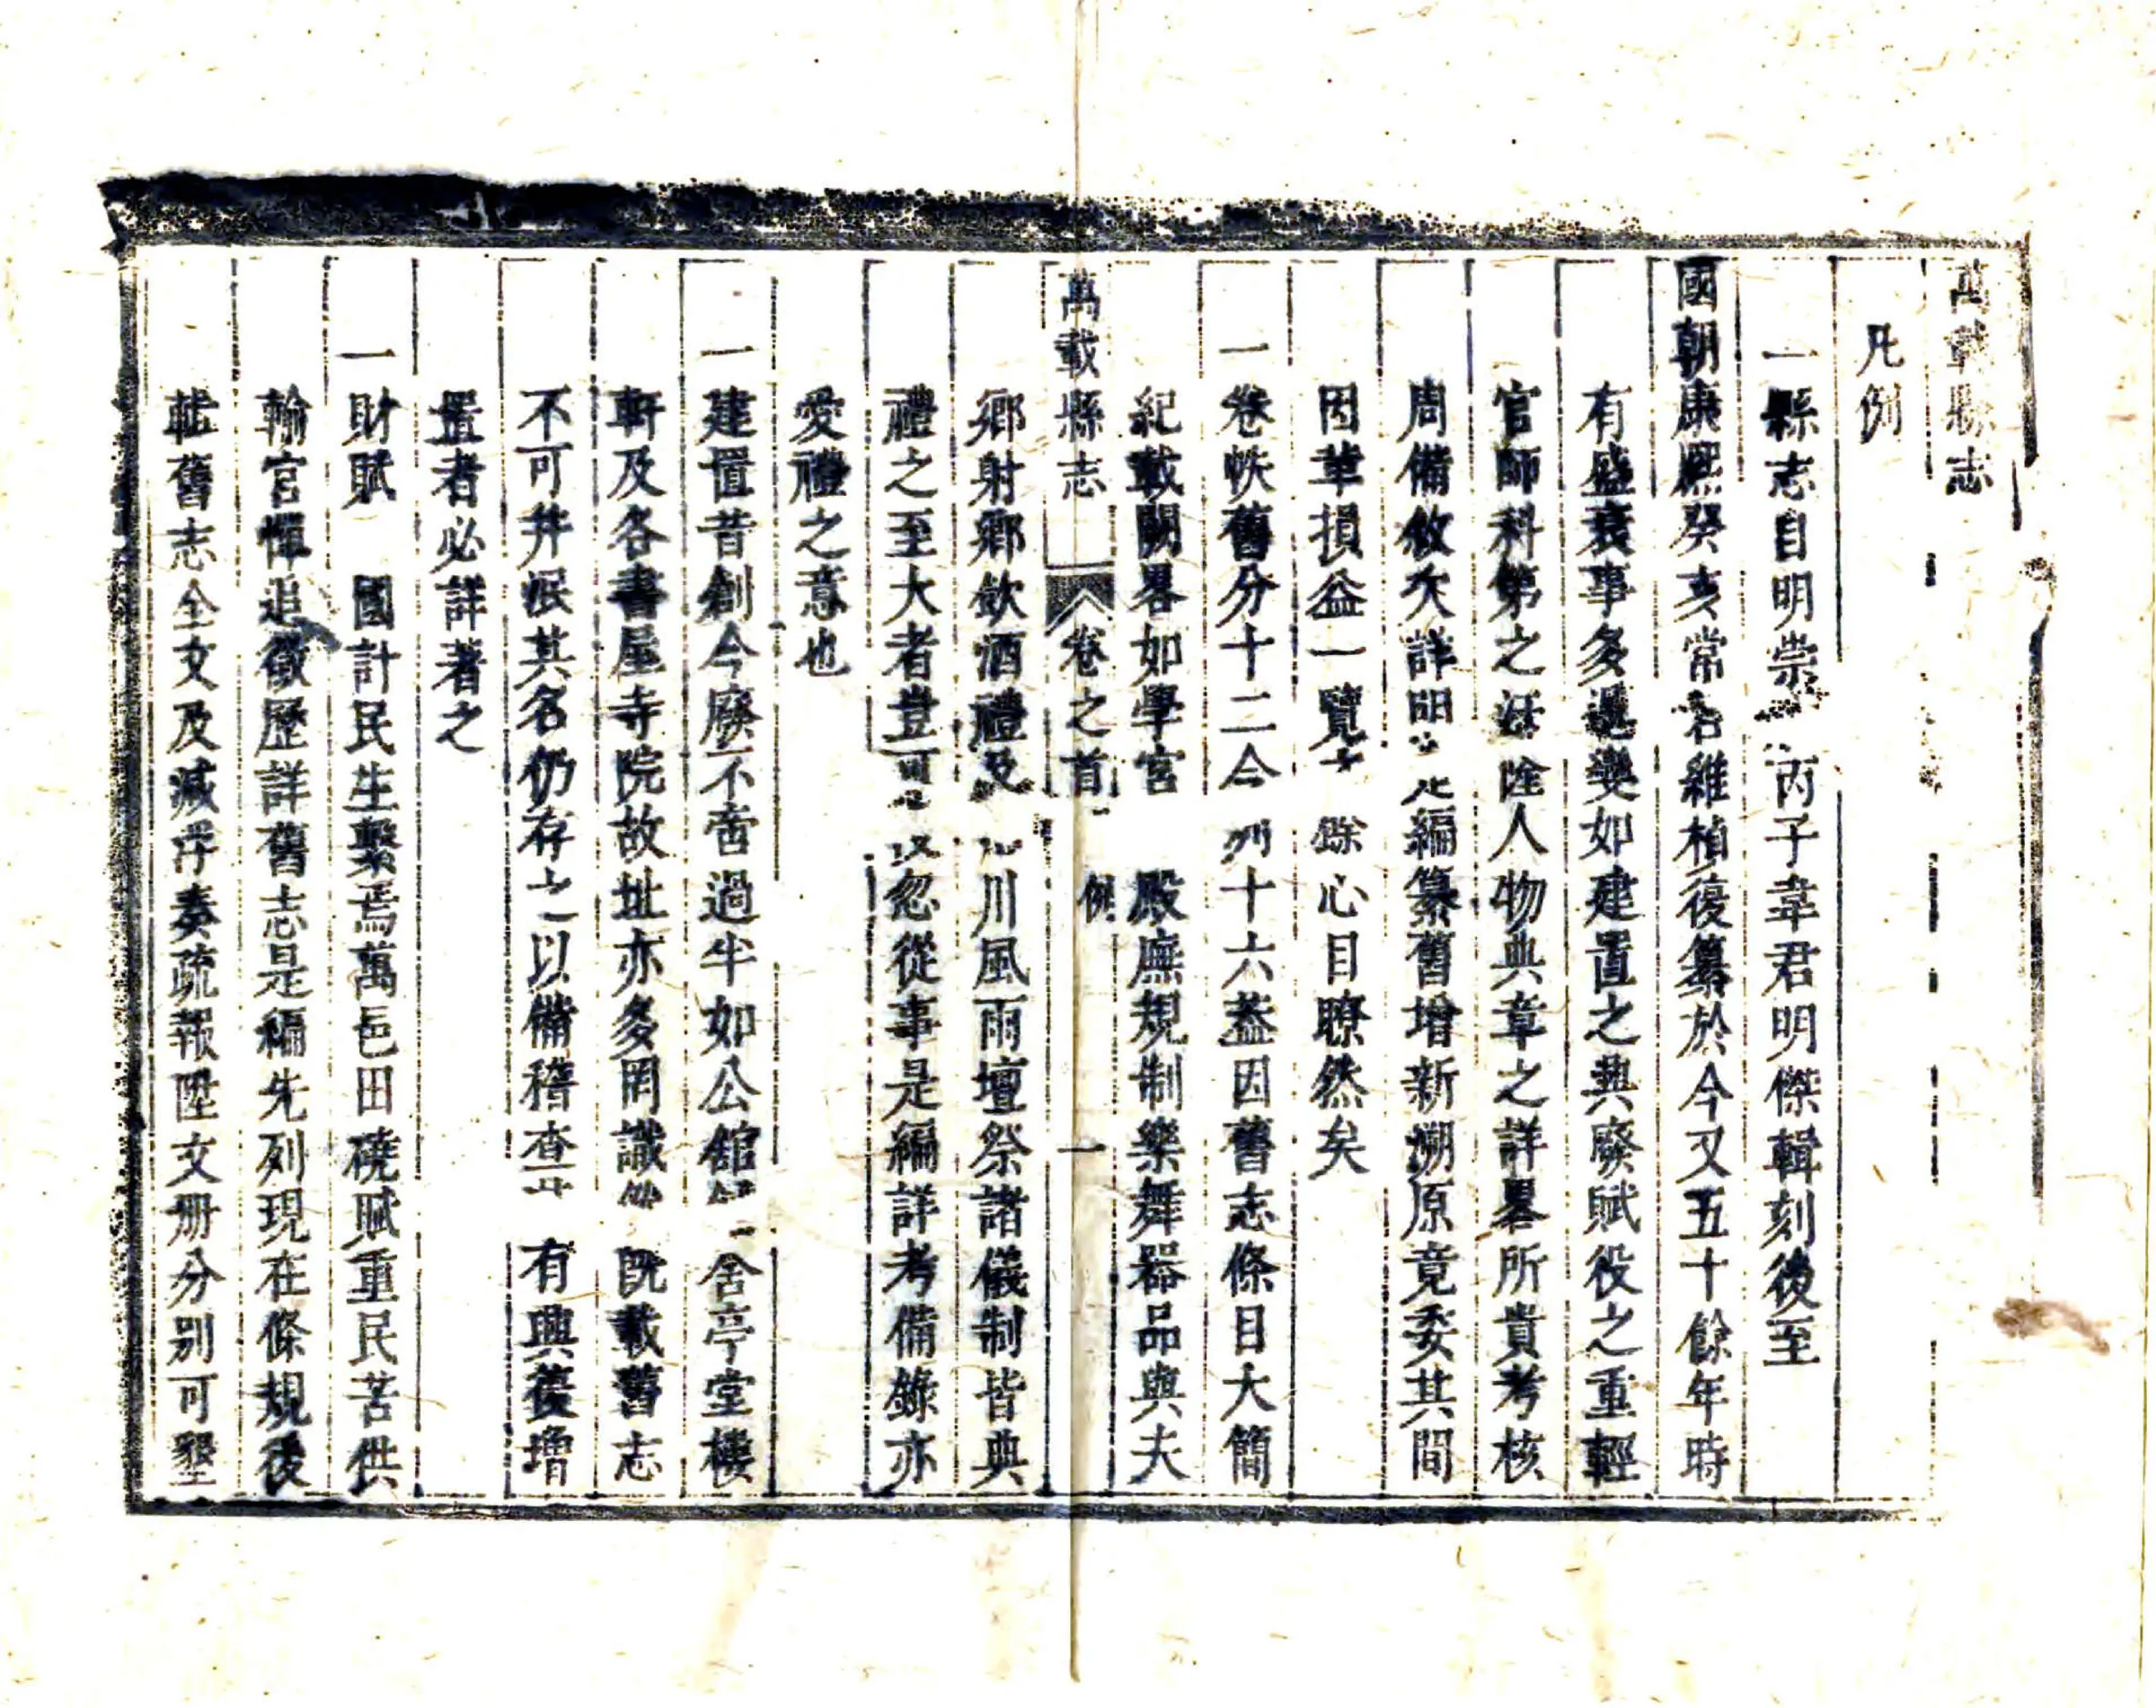 萬載縣志
凡例
一縣志自明崇 丙子韋君明傑輯刻後至
國朝康熙癸亥常君維楨復纂於今又五十餘年時
有盛衰事多遞變如建置之興廢賦役之重輕
官師科第之 人物典章之詳畧所貴考核
周備敘次詳明 此編纂舊增新溯原竟委其間
因革損益一覽 餘心目瞭然矣
一卷帙舊分十二今列十六蓋因舊志條目大簡
紀載闕畧如學宮 殿廡規制樂舞器品與夫
萬載縣志 卷之首 例 一
鄉射鄉飲酒禮及 川風雨壇祭諸儀制皆典
禮之至大者豈可 忽從事是編詳考備錄亦
愛禮之意也
一建置昔創今廢不啻過半如公館 舍亭堂樓
軒及各書屋寺院故址亦多罔識 既載舊志
不可并泯其名仍存之以備稽查 有興復增
置者必詳著之
一財賦 國計民生繫焉萬邑田磽賦重民苦供
輸官憚追徵歷詳舊志是編先列現在條規後
輯舊志全文及減浮奏疏報陞文册分别可墾